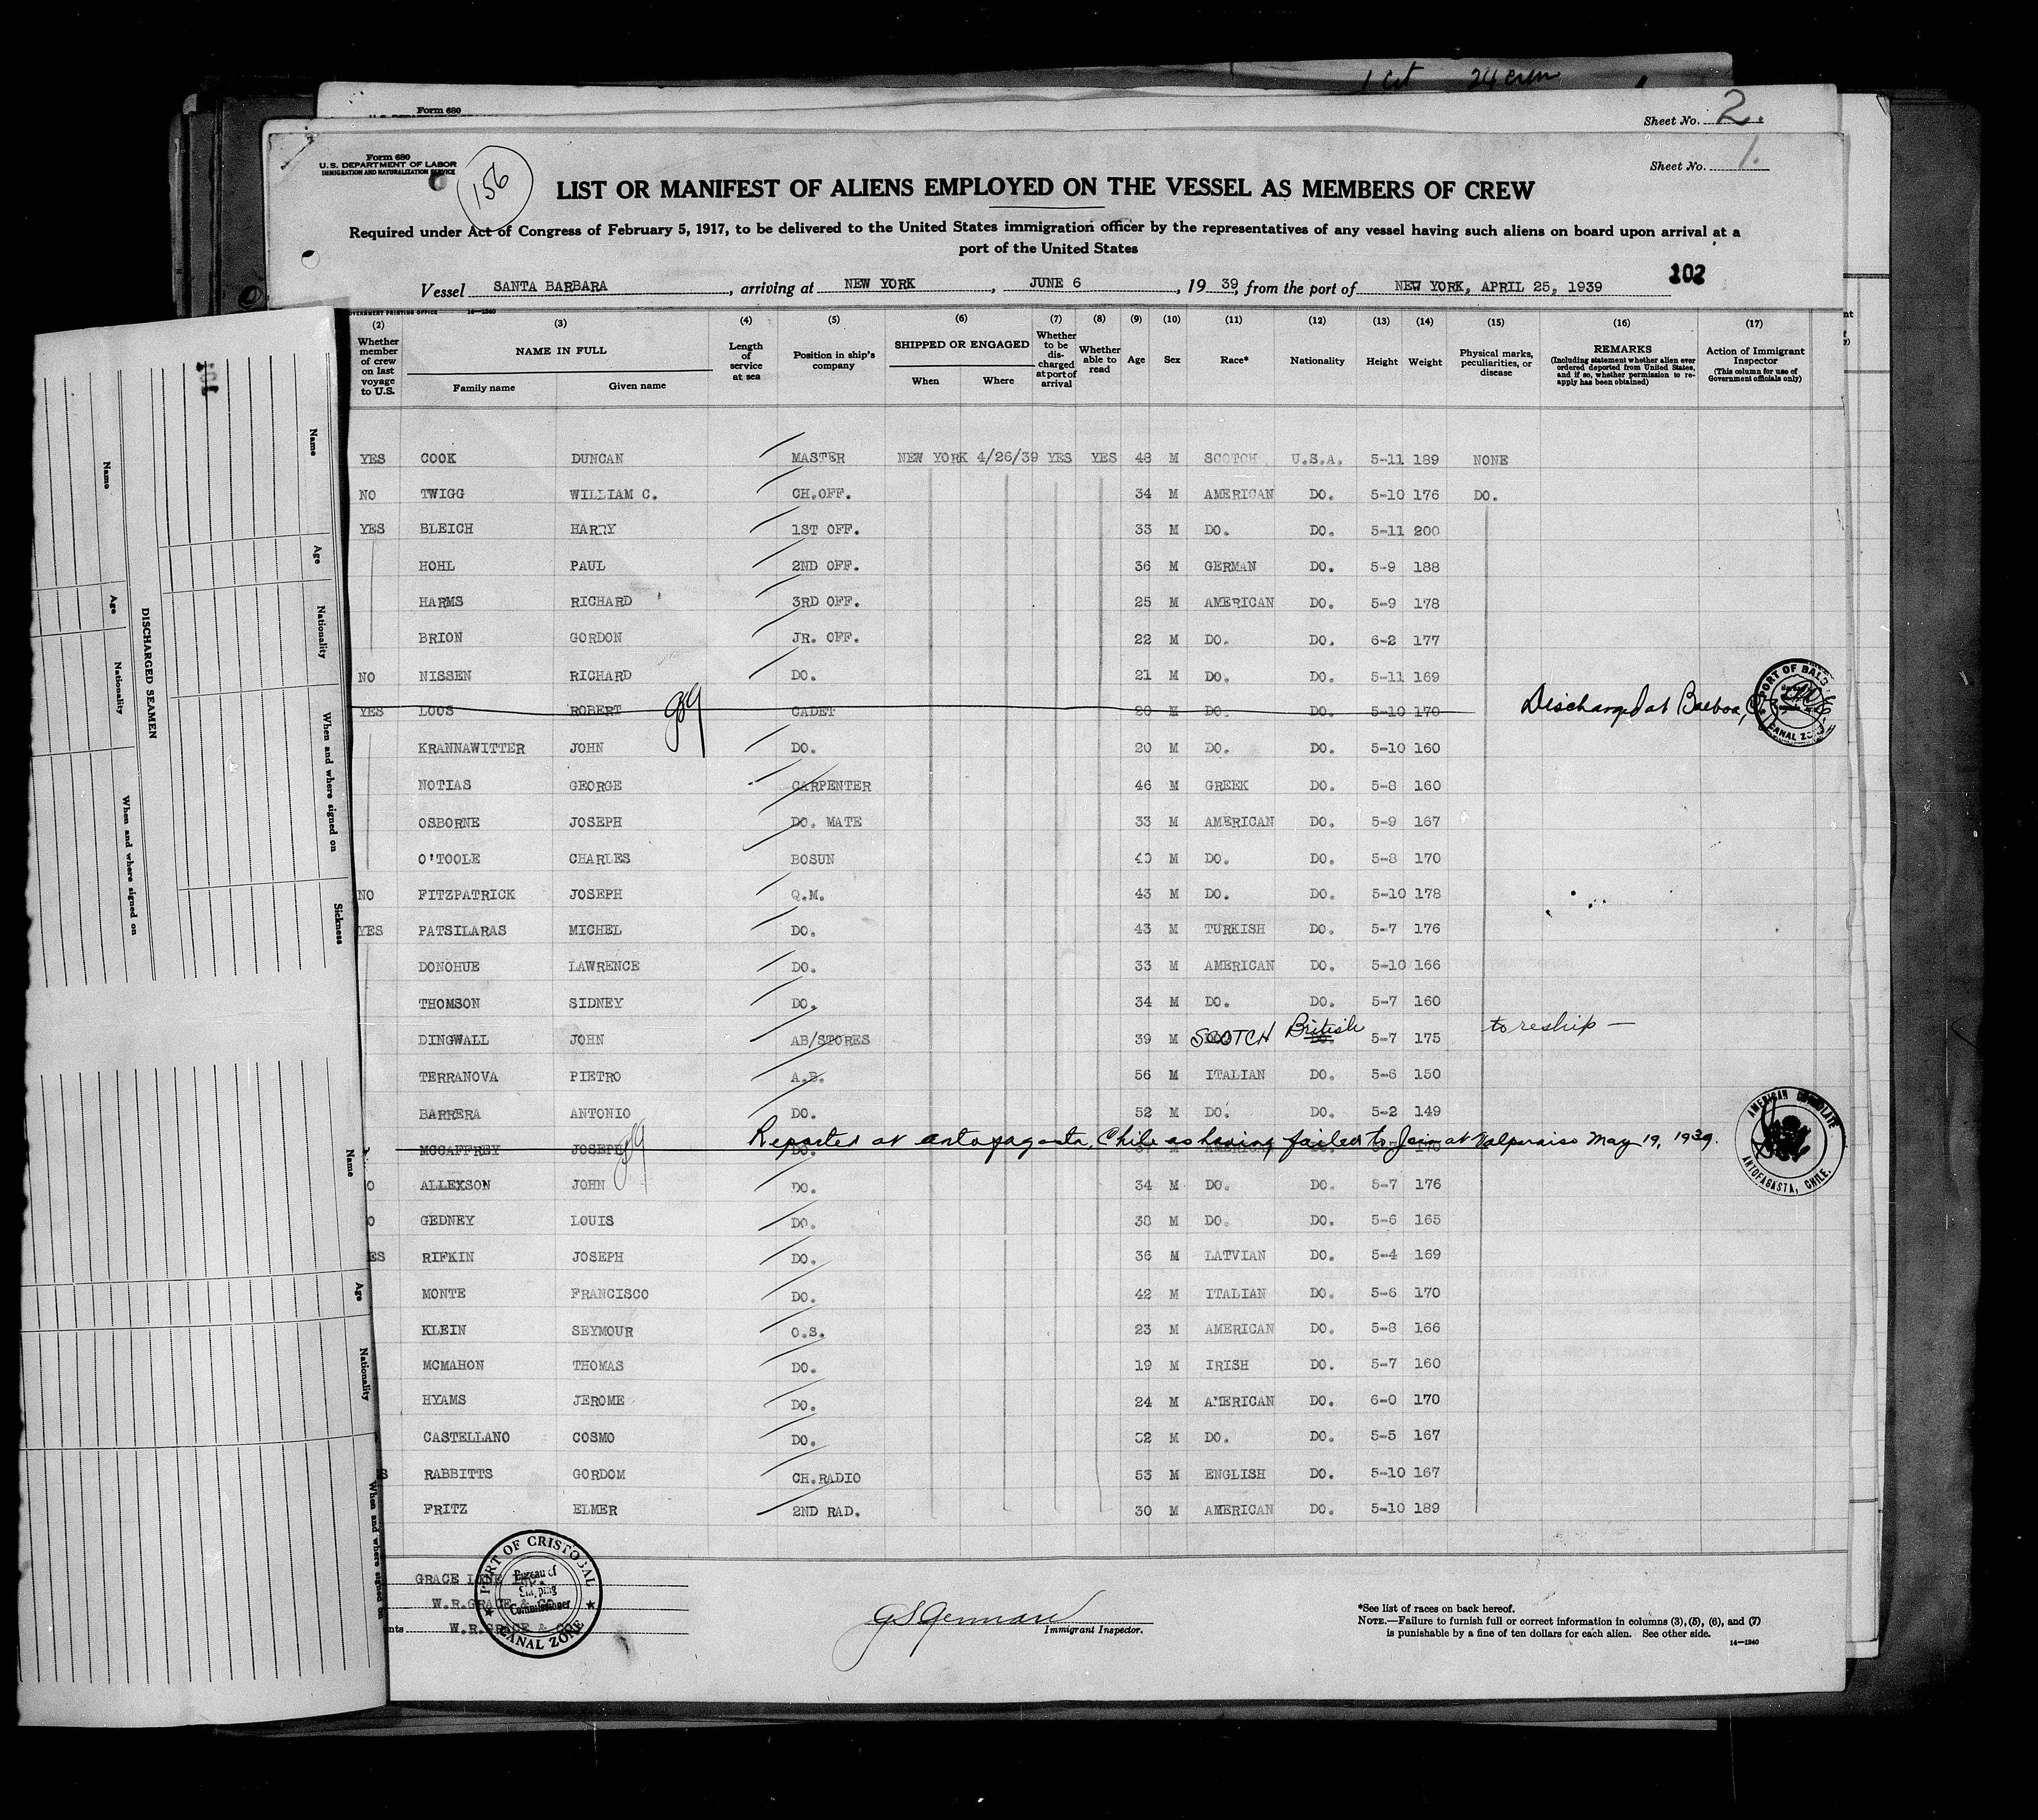 1 Crt 24 crew
Form 680
Sheet No. 2.
Form 680
U.S. DEPARTMENT OF LABOR
IMMIGRATION AND NATURALIZATION SERVICE
156
Sheet No. 1.
LIST OR MANIFEST OF ALIENS EMPLOYED ON THE VESSEL AS MEMBERS OF CREW
Required under Act of Congress of February 5, 1917, to be delivered to the United States immigration officer by the representatives of any vessel having such aliens on board upon arrival at a
port of the United States
102
Vessel SANTA BARBARA, arriving at NEW YORK, JUNE 6, 1939, from the port of NEW YORK, APRIL 25, 1939
GOVERNMENT PRINTING OFFICE 14—1240
(2) (3) (4) (5) (6) (7) (8) (9) (10) (11) (12) (13) (14) (15) (16) (17)
Whether member of crew on last voyage to U.S.
NAME IN FULL
Family name Given name
Length of service at sea
Position in ship's company
SHIPPED OR ENGAGED
When Where
Whether to be discharged at port of arrival
Whether able to read
Age Sex Race* Nationality Height Weight
Physical marks, peculiarities, or disease
REMARKS
(Including statement whether alien ever ordered deported from United States, and if so, whether permission to re-apply has been obtained)
Action of Immigrant Inspector
(This column for use of Government officials only)
YES COOK DUNCAN MASTER NEW YORK 4/26/39 YES YES 48 M SCOTCH U.S.A. 5-11 189 NONE
NO TWIGG WILLIAM C. CH.OFF. 34 M AMERICAN DO. 5-10 176 DO.
YES BLEICH HARRY 1ST OFF. 33 M DO. DO. 5-11 200
HOHL PAUL 2ND OFF. 36 M GERMAN DO. 5-9 188
HARMS RICHARD 3RD OFF. 25 M AMERICAN DO. 5-9 178
BRION GORDON JR. OFF. 22 M DO. DO. 6-2 177
NO NISSEN RICHARD DO. 21 M DO. DO. 5-11 169
YES LOOS ROBERT CADET 20 M DO. DO. 5-10 170 Discharged at Balboa,
PORT OF BALBOA CANAL ZONE
KRANNAWITTER JOHN DO. 20 M DO. DO. 5-10 160
NOTIAS GEORGE CARPENTER 46 M GREEK DO. 5-8 160
OSBORNE JOSEPH DO. MATE 33 M AMERICAN DO. 5-9 167
O'TOOLE CHARLES BOSUN 40 M DO. DO. 5-8 170
NO FITZPATRICK JOSEPH Q.M. 43 M DO. DO. 5-10 178
YES PATSILARAS MICHEL DO. 43 M TURKISH DO. 5-7 176
DONOHUE LAWRENCE DO. 33 M AMERICAN DO. 5-10 166
THOMSON SIDNEY DO. 34 M DO. DO. 5-7 160
DINGWALL JOHN AB/STORES 39 M SCOTCH British DO. 5-7 175 to reship —
TERRANOVA PIETRO A.B. 56 M ITALIAN DO. 5-6 150
BARRERA ANTONIO DO. 52 M DO. DO. 5-2 149
Reported at Antofagasta, Chile as having failed to Join at Valparaiso May 19, 1939.
MCCAFFREY JOSEPH DO. 37 M AMERICAN
AMERICAN CONSULATE ANTOFAGASTA, CHILE.
O ALLEXSON JOHN DO. 34 M DO. DO. 5-7 176
O GEDNEY LOUIS DO. 38 M DO. DO. 5-6 165
ES RIFKIN JOSEPH DO. 36 M LATVIAN DO. 5-4 169
MONTE FRANCISCO DO. 42 M ITALIAN DO. 5-6 170
KLEIN SEYMOUR O.S. 23 M AMERICAN DO. 5-8 166
MCMAHON THOMAS DO. 19 M IRISH DO. 5-7 160
HYAMS JEROME DO. 24 M AMERICAN DO. 6-0 170
CASTELLANO COSMO DO. M DO. DO. 5-5 167
S RABBITTS GORDOM CH.RADIO 53 M ENGLISH DO. 5-10 167
FRITZ ELMER 2ND RAD. 30 M AMERICAN DO. 5-10 189
GRACE LINE INC.
W.R.GRACE & CO.
nts W.R.GRACE & CO
PORT OF CRISTOBAL
Bureau of
Shipping
Commissioner
CANAL ZONE
GSGerman
Immigrant Inspector.
*See list of races on back hereof.
NOTE.—Failure to furnish full or correct information in columns (3), (5), (6), and (7)
is punishable by a fine of ten dollars for each alien. See other side.
14—1240
101
DISCHARGED SEAMEN
Name Age Nationality When and where signed on Sickness
Name Age Nationality When and where signed on
Name Age Nationality When and where signed on